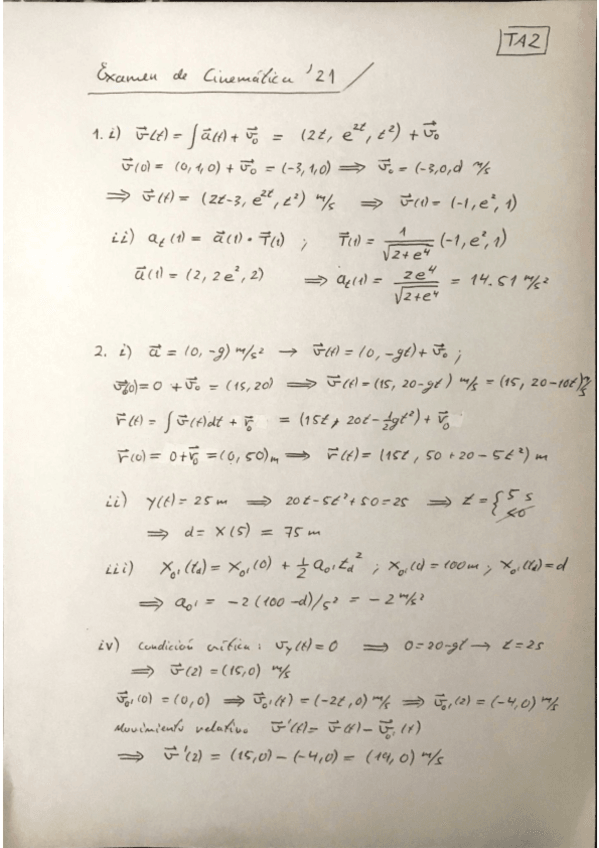 TA2
Examen de Cinemática '21
1. i) v⃗(t) = ∫ a⃗(t) + v⃗₀ = (2t, e^{2t}, t²) + v⃗₀
v⃗(0) = (0,1,0) + v⃗₀ = (-3,1,0) ⟹ v⃗₀ = (-3,0,0) m/s
⟹ v⃗(t) = (2t-3, e^{2t}, t²) m/s ⟹ v⃗(1) = (-1, e², 1)
ii) a_t(1) = a⃗(1) · T⃗(1) ; T⃗(1) = 1/√(2+e⁴) (-1, e², 1)
a⃗(1) = (2, 2e², 2) ⟹ a_t(1) = 2e⁴/√(2+e⁴) = 14.51 m/s²
2. i) a⃗ = (0, -g) m/s² → v⃗(t) = (0, -gt) + v⃗₀ ;
v⃗(0) = 0 + v⃗₀ = (15, 20) ⟹ v⃗(t) = (15, 20-gt) m/s = (15, 20-10t) m/s
r⃗(t) = ∫ v⃗(t)dt + r⃗₀ = (15t, 20t - ½gt²) + r⃗₀
r⃗(0) = 0 + r⃗₀ = (0, 50) m ⟹ r⃗(t) = (15t, 50 + 20 - 5t²) m
ii) y(t) = 25 m ⟹ 20t - 5t² + 50 = 25 ⟹ t = { 5 s <0
⟹ d = x(5) = 75 m
iii) x_{o'}(t_d) = x_{o'}(0) + ½ a_{o'} t_d² ; x_{o'}(0) = 100 m ; x_{o'}(t_d) = d
⟹ a_{o'} = -2(100-d)/5² = -2 m/s²
iv) Condición crítica : v_y(t) = 0 ⟹ 0 = 20 - gt → t = 2s
⟹ v⃗(2) = (15, 0) m/s
v⃗_{o'}(0) = (0, 0) ⟹ v⃗_{o'}(t) = (-2t, 0) m/s ⟹ v⃗_{o'}(2) = (-4, 0) m/s
Movimiento relativo v⃗'(t) = v⃗(t) - v⃗_{o'}(t)
⟹ v⃗'(2) = (15,0) - (-4,0) = (19, 0) m/s